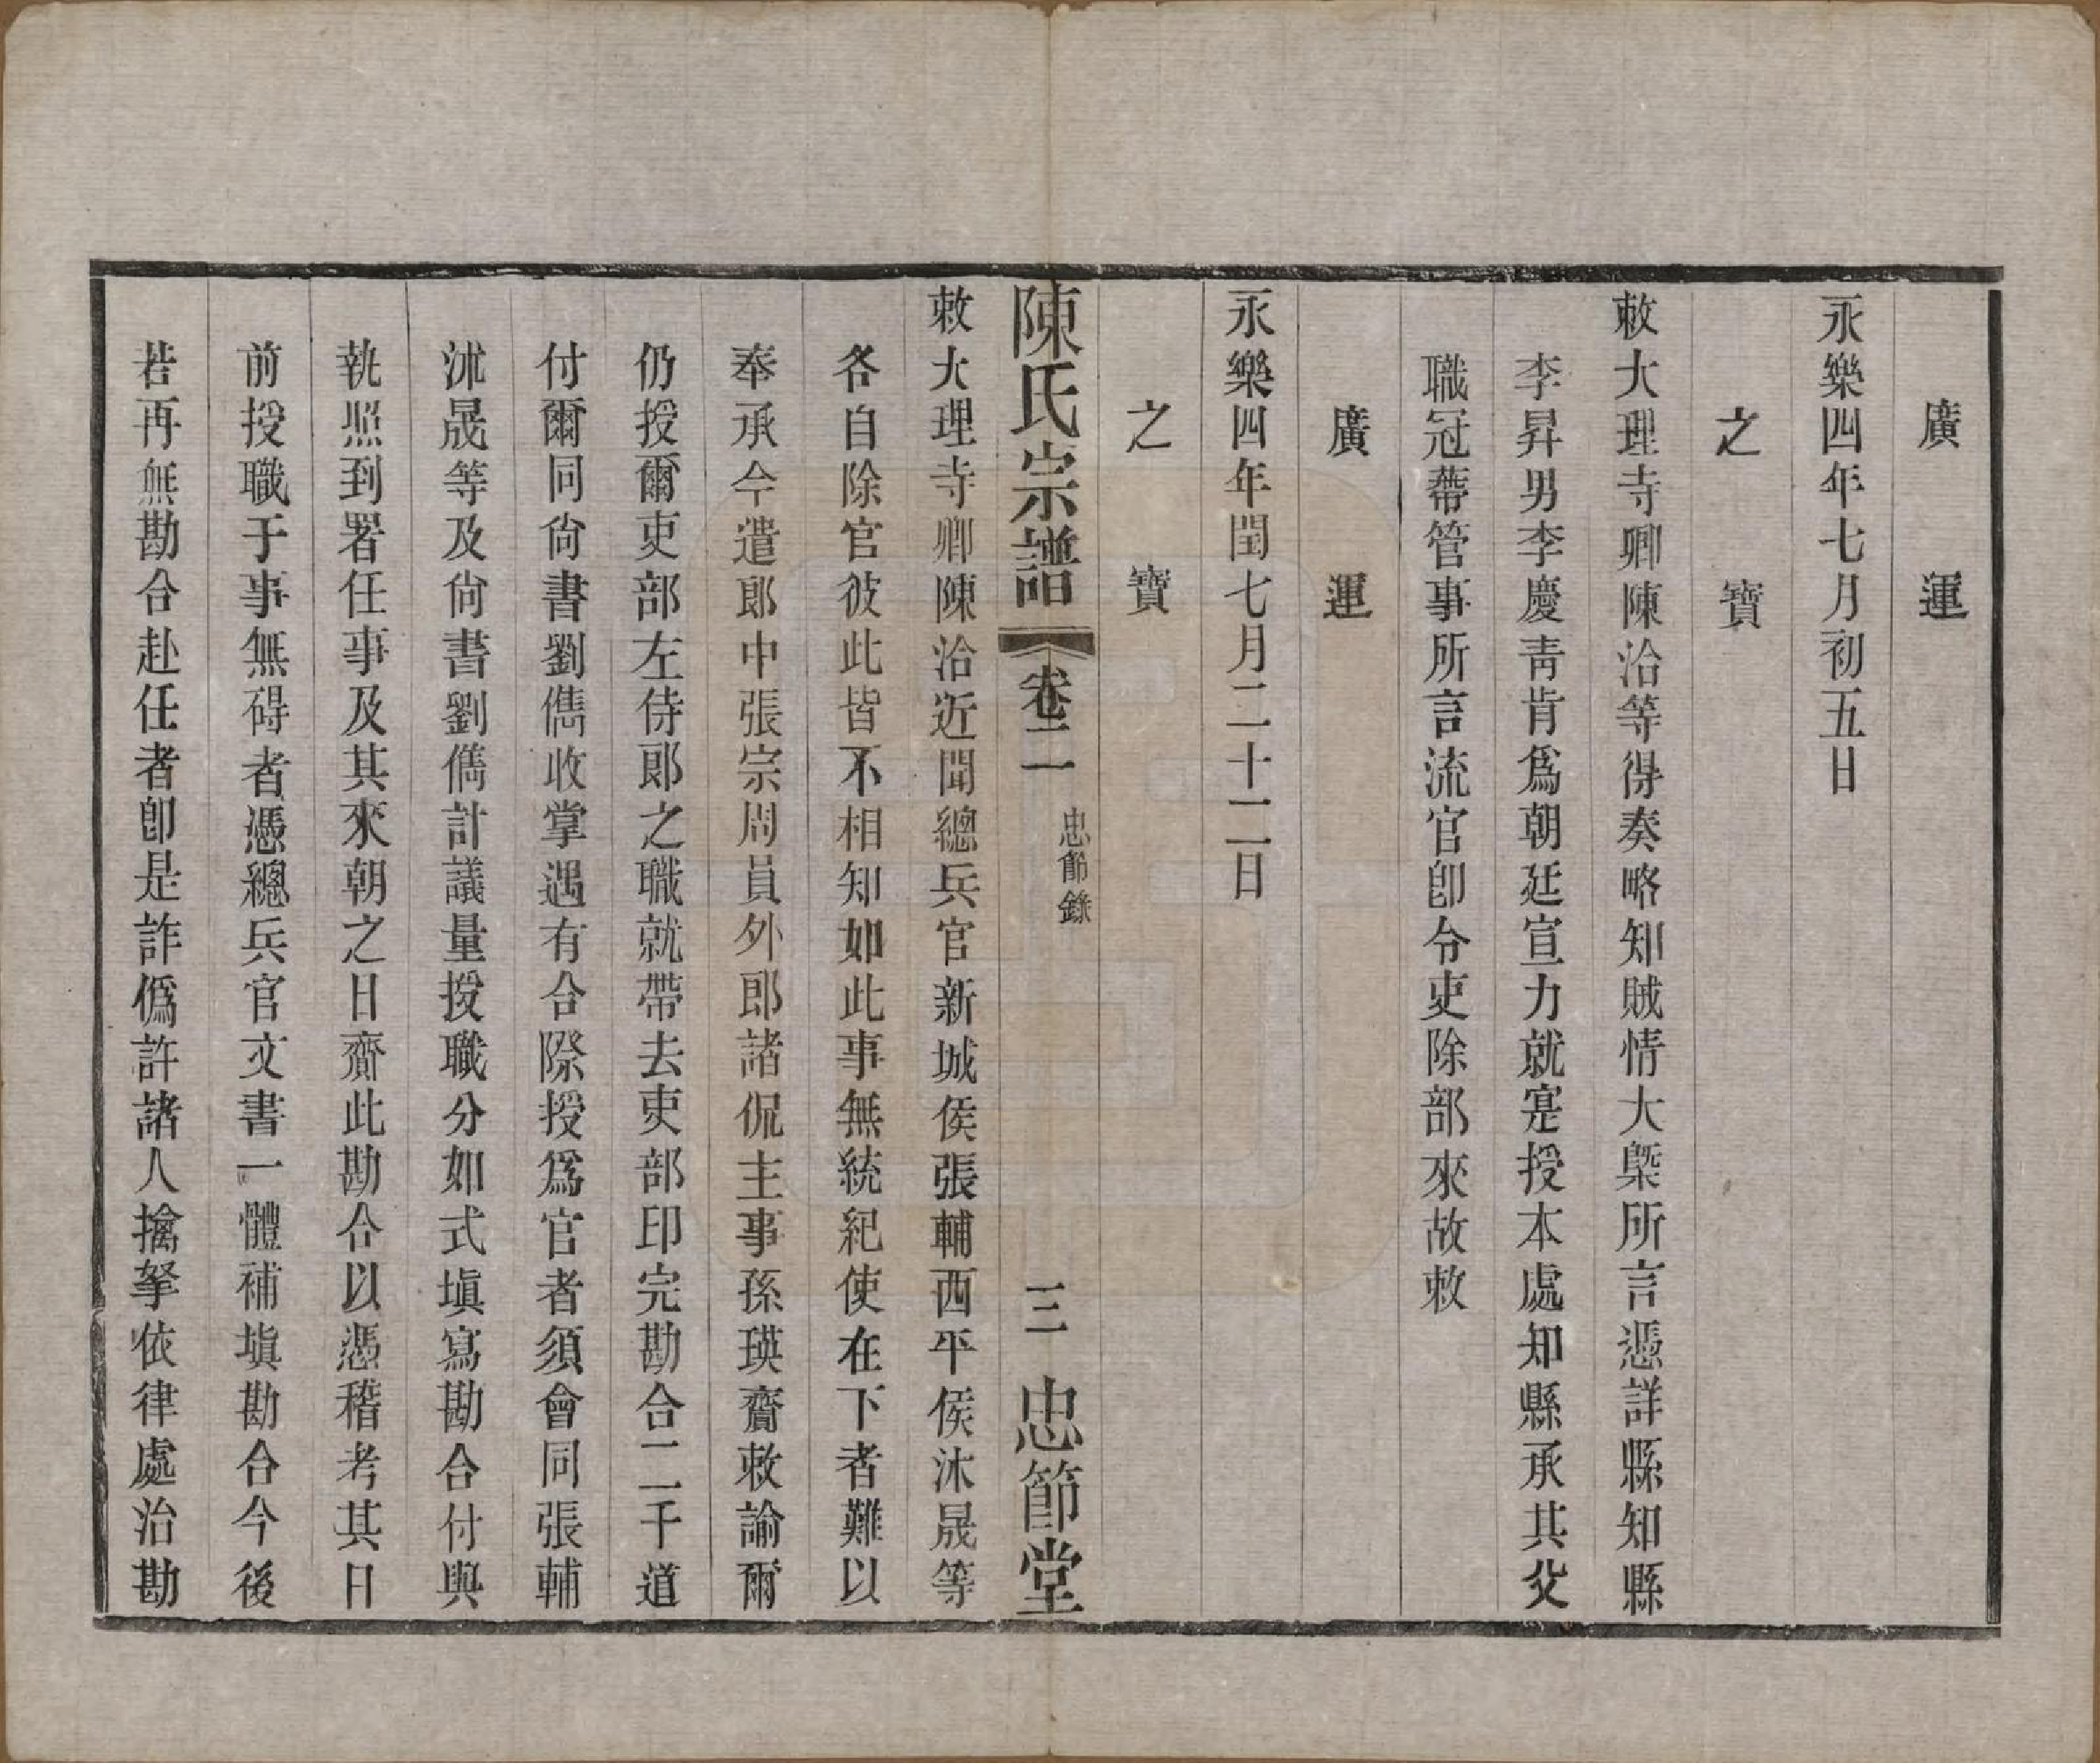 廣運
永樂四年七月初五日
之寶
敕大理寺卿陳洽等得奏略知賊情大槩所言憑詳縣知縣
李昇男李慶靑肯爲朝廷宣力就寔授本處知縣承其父
職冠帶管事所言流官卽令吏除部來故敕
廣運
永樂四年閏七月二十二日
之寶
陳氏宗譜 卷二 忠節錄 三 忠節堂
敕大理寺卿陳洽近聞總兵官新城侯張輔西平侯沐晟等
各自除官彼此皆不相知如此事無統紀使在下者難以
奉承今遣郎中張宗周員外郎諸侃主事孫瑛齎敕諭爾
仍授爾吏部左侍郎之職就帶去吏部印完勘合二千道
付爾同尙書劉儁收掌遇有合除授爲官者須會同張輔
沭晟等及尙書劉儁計議量授職分如式塡寫勘合付與
執照到署任事及其來朝之日齎此勘合以憑稽考其日
前授職于事無碍者憑總兵官文書一體補塡勘合今後
若再無勘合赴任者卽是詐僞許諸人擒拏依律處治勘